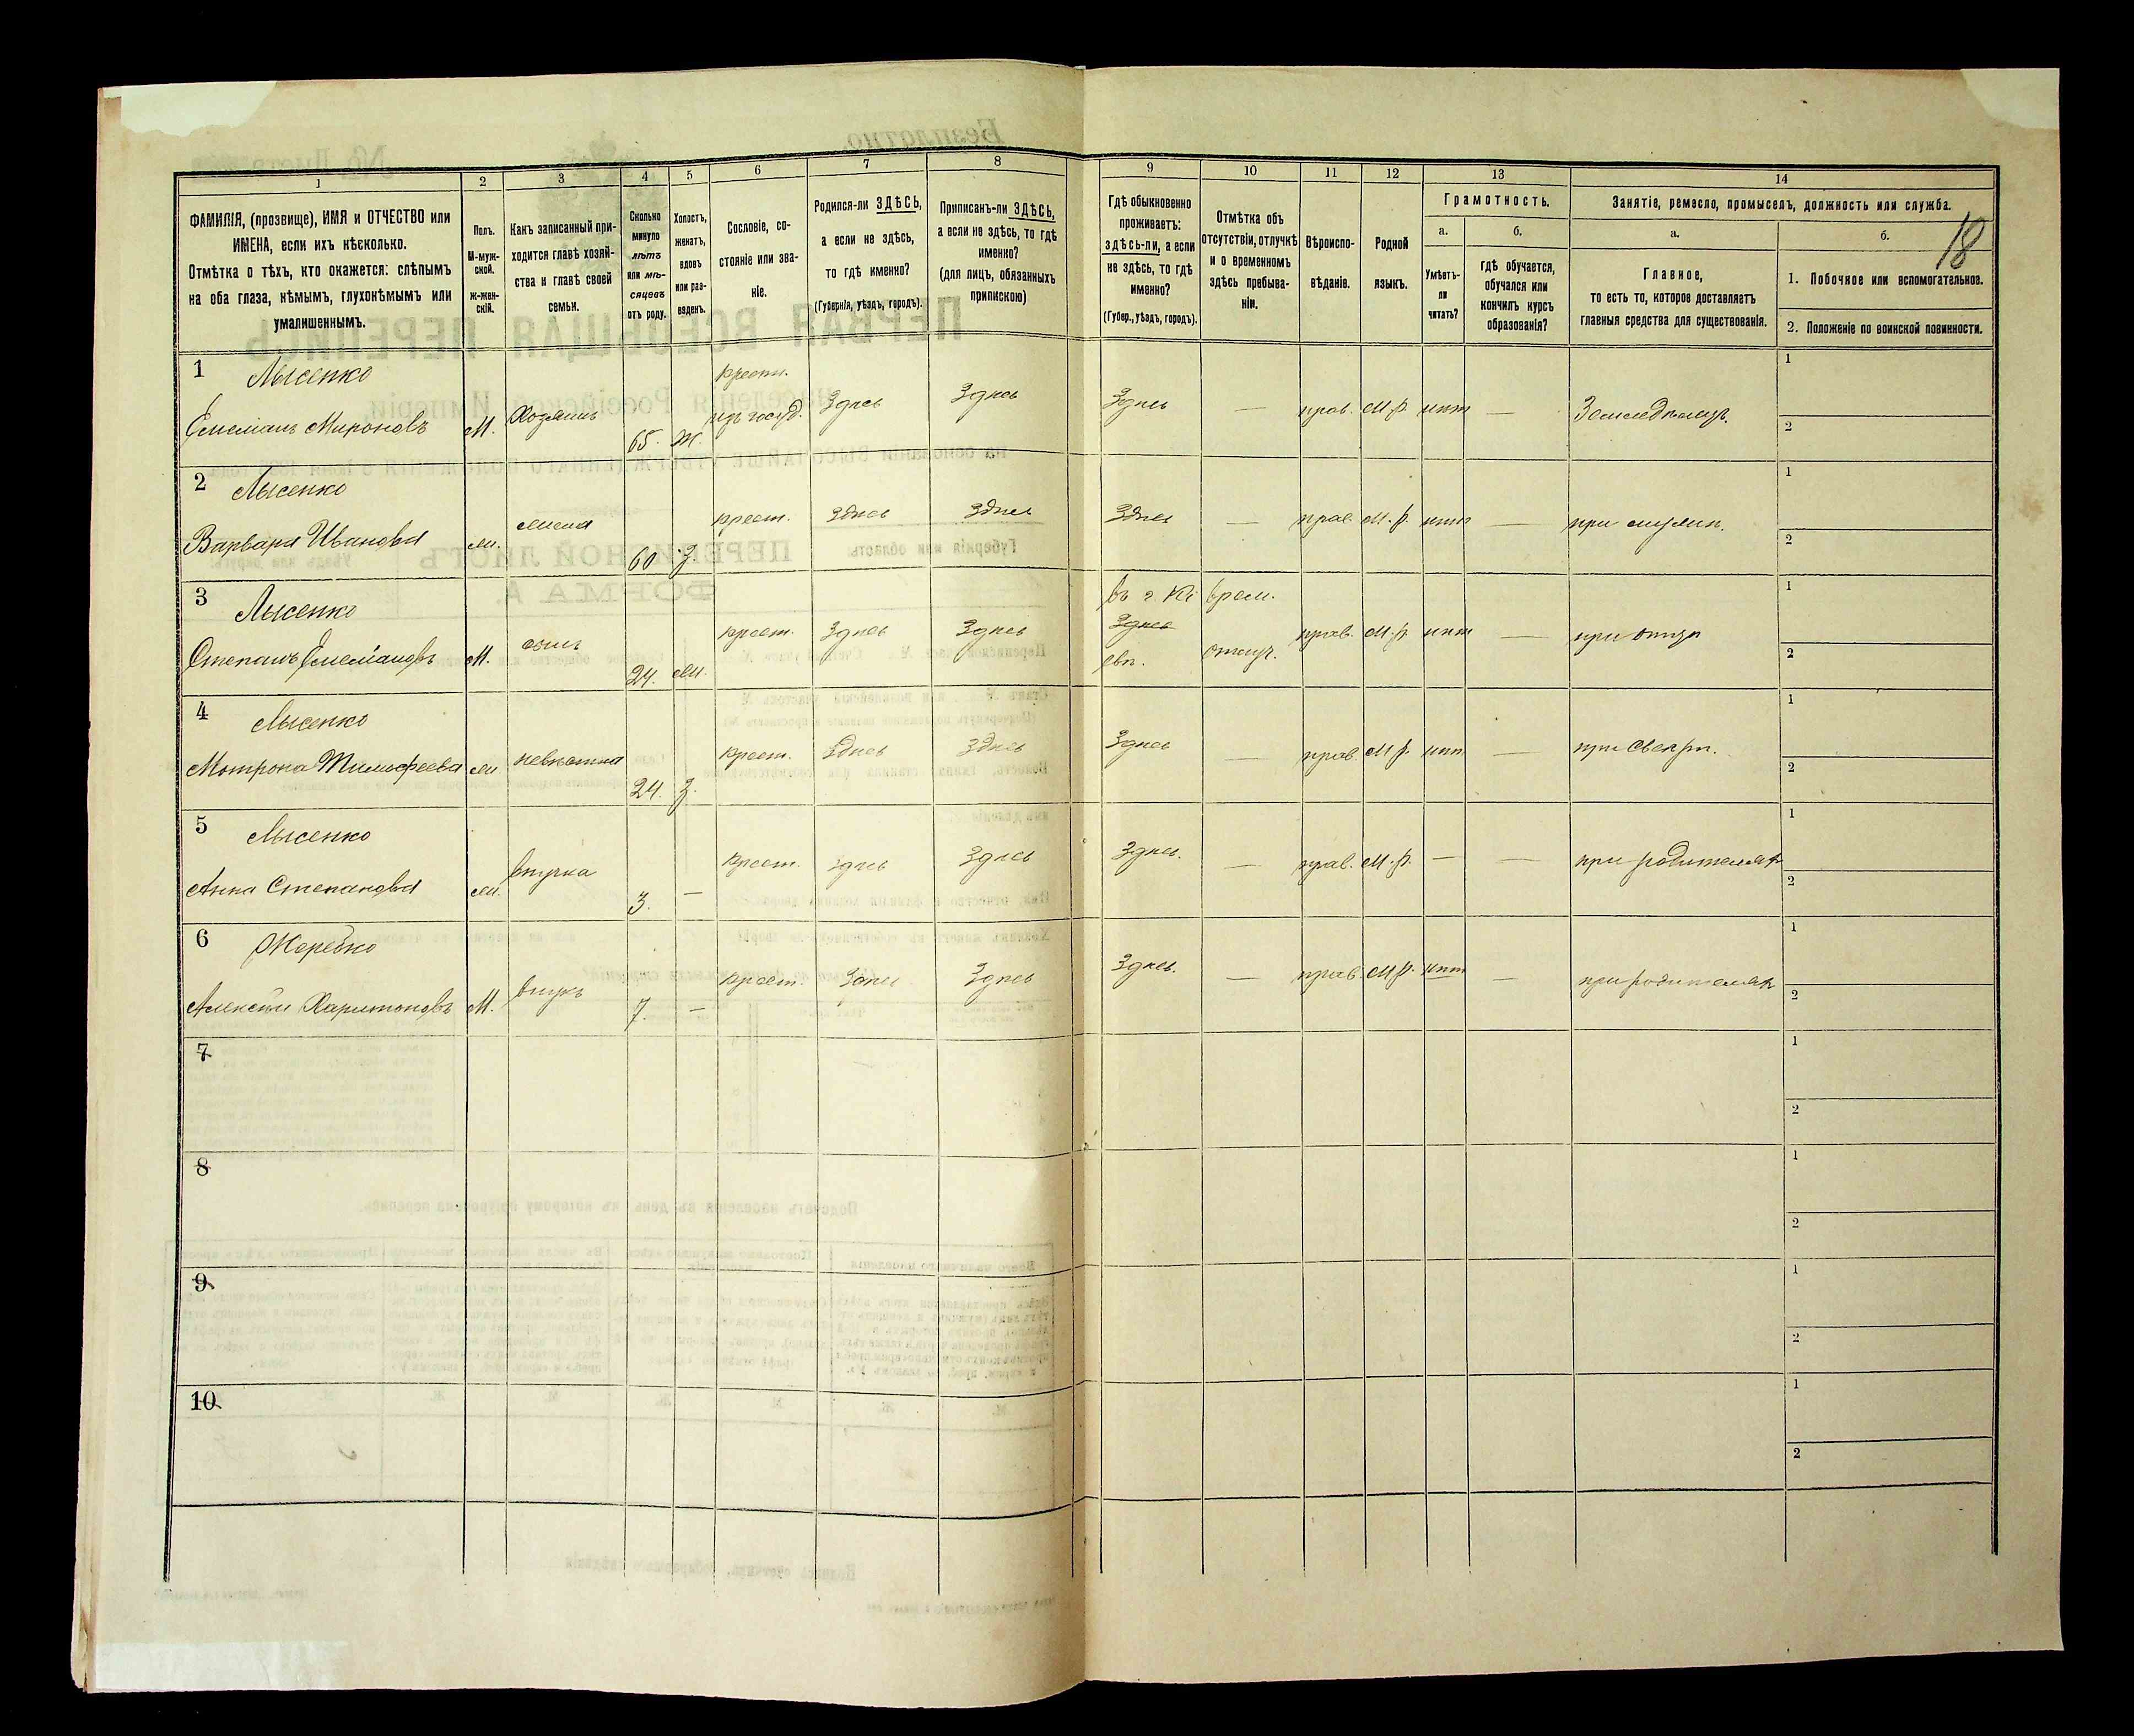 18
1 2 3 4 5 6 7 8 9 10 11 12 13 14
ФАМИЛІЯ, (прозвище), ИМЯ и ОТЧЕСТВО или
ИМЕНА, если ихъ нѣсколько.
Отмѣтка о тѣхъ, кто окажется: слѣпымъ
на оба глаза, нѣмымъ, глухонѣмымъ или
умалишеннымъ.
Полъ.
М-муж-
ской.
ж-жен-
скій.
Какъ записанный при-
ходится главѣ хозяй-
ства и главѣ своей
семьи.
Сколько
минуло
лѣтъ
или мѣ-
сяцевъ
отъ роду.
Холостъ,
женатъ,
вдовъ
или раз-
веденъ.
Сословіе, со-
стояніе или зва-
ніе.
Родился-ли ЗДѢСЬ,
а если не здѣсь,
то гдѣ именно?
(Губернія, уѣздъ, городъ).
Приписанъ-ли ЗДѢСЬ,
а если не здѣсь, то гдѣ
именно?
(для лицъ, обязанныхъ
припискою)
Гдѣ обыкновенно
проживаетъ:
здѣсь-ли, а если
не здѣсь, то гдѣ
именно?
(Губер., уѣздъ, городъ).
Отмѣтка объ
отсутствіи, отлучкѣ
и о временномъ
здѣсь пребыва-
ніи.
Вѣроиспо-
вѣданіе.
Родной
языкъ.
Грамотность.
а.
Умѣетъ-
ли
читать?
б.
гдѣ обучается,
обучался или
кончилъ курсъ
образованія?
Занятіе, ремесло, промыселъ, должность или служба.
а.
Главное,
то есть то, которое доставляетъ
главныя средства для существованія.
б.
1. Побочное или вспомогательное.
2. Положеніе по воинской повинности.
1 Лысенко крест. 1
Емеліанъ Мироновъ М. Хозяинъ 65. ж. изъ госуд. Здѣсь Здѣсь Здѣсь — прав. М.р. нѣт — Земледѣлецъ. 2
2 Лысенко 1
Варвара Иванова жена 60 з. крест. здѣсь здѣсь Здѣсь — прав. М.р. нѣт — при мужѣ. 2
3 Лысенко въ г. Кі врем. 1
Степанъ Емеліановъ М. сынъ 24. крест. Здѣсь Здѣсь Здѣсь отлуч. прав. М.р. нѣт — при отцѣ 2
евѣ.
4 Лысенко 1
Мотрона Тимофеева невѣстка 24. з. крест. Здѣсь Здѣсь Здѣсь — прав. М.р. нѣт — при свекрѣ. 2
5 Лысенко 1
Анна Степанова внучка 3. — крест. здѣсь Здѣсь Здѣсь. — прав. М.р. — — при родителях 2
6 Жеребко 1
Алексѣй Харитоновъ М. внукъ 7. — крест. Здѣсь Здѣсь Здѣсь. — прав. М.р. нѣт — при родителях 2
7 1
2
8 1
2
9 1
2
10 1
2